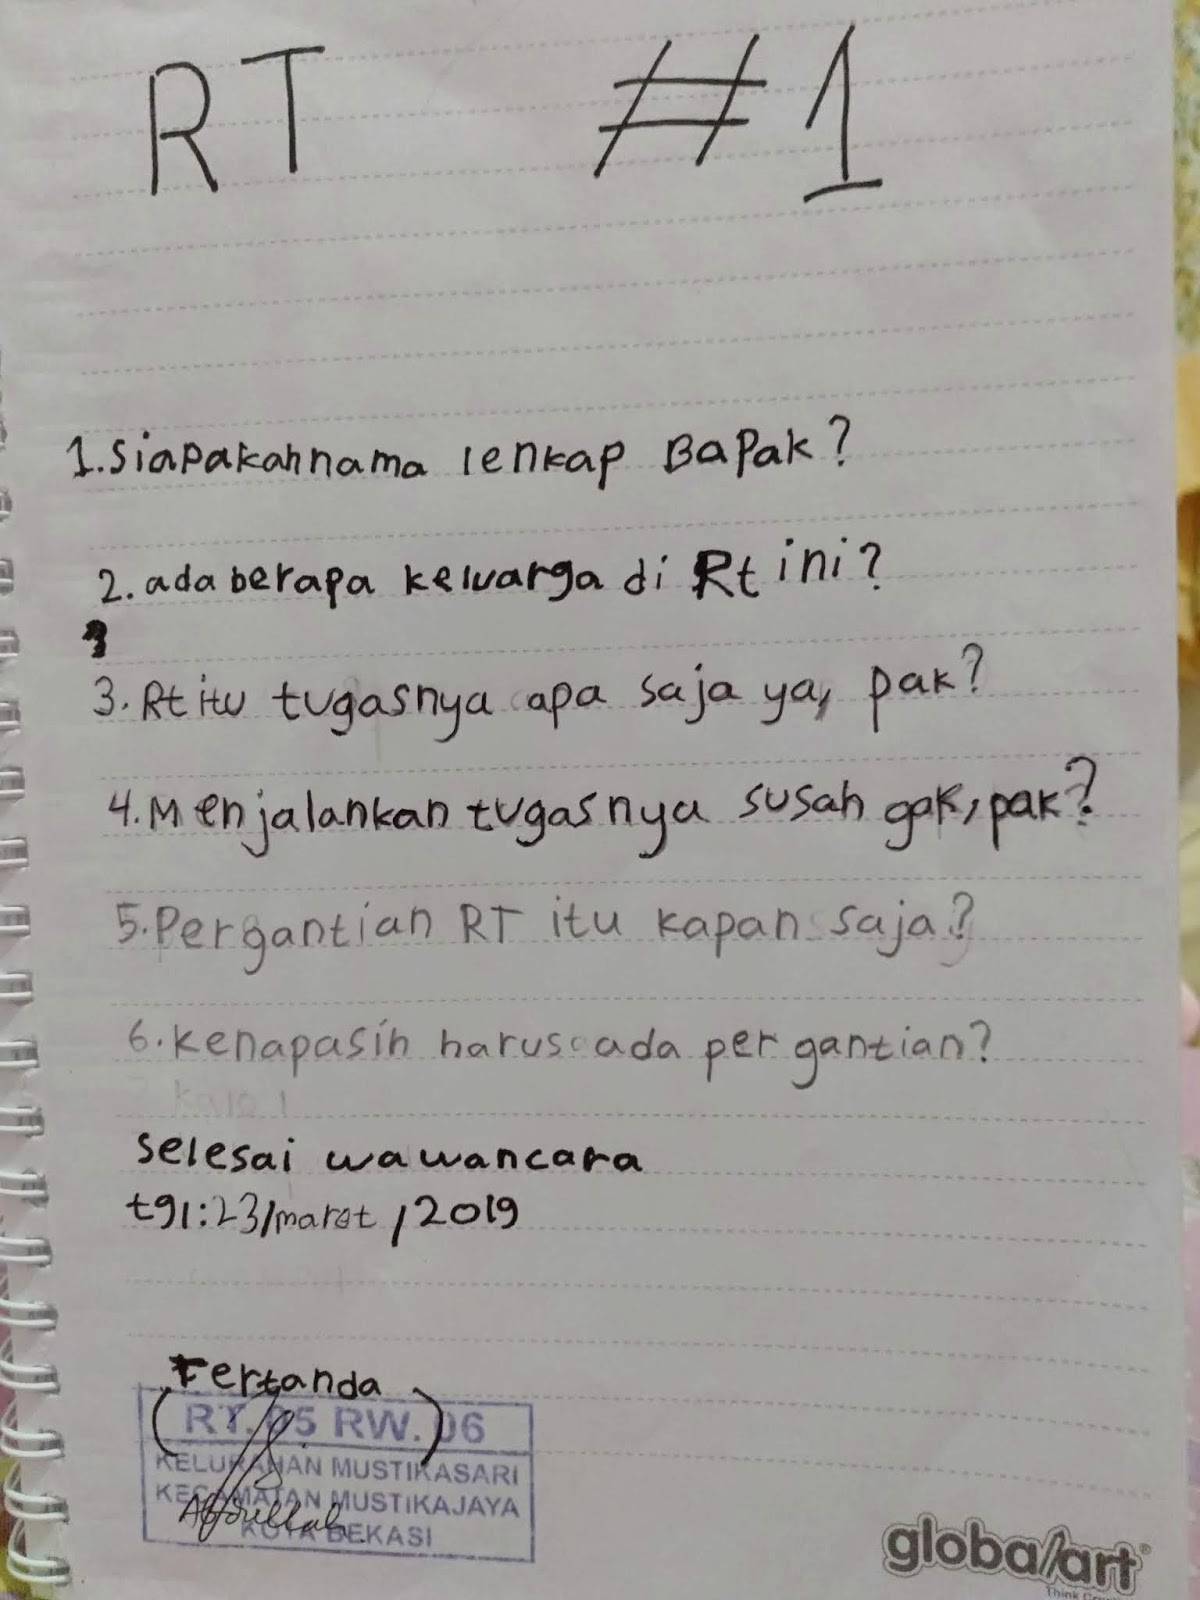 RT #1
1.Siapakahnama lenkap Bapak?
2. ada berapa keluarga di Rt ini?
3. Rt itu tugasnya apa saja ya, pak?
4. Menjalankan tugasnya susah gak, pak?
5. Pergantian RT itu kapan saja?
6. kenapasih harus ada pergantian?
selesai wawancara
tgl: 23/maret/2019
Tertanda
RT. 05 RW. 06
KELURAHAN MUSTIKASARI
KECAMATAN MUSTIKAJAYA
KOTA BEKASI
Abdullah
globalart